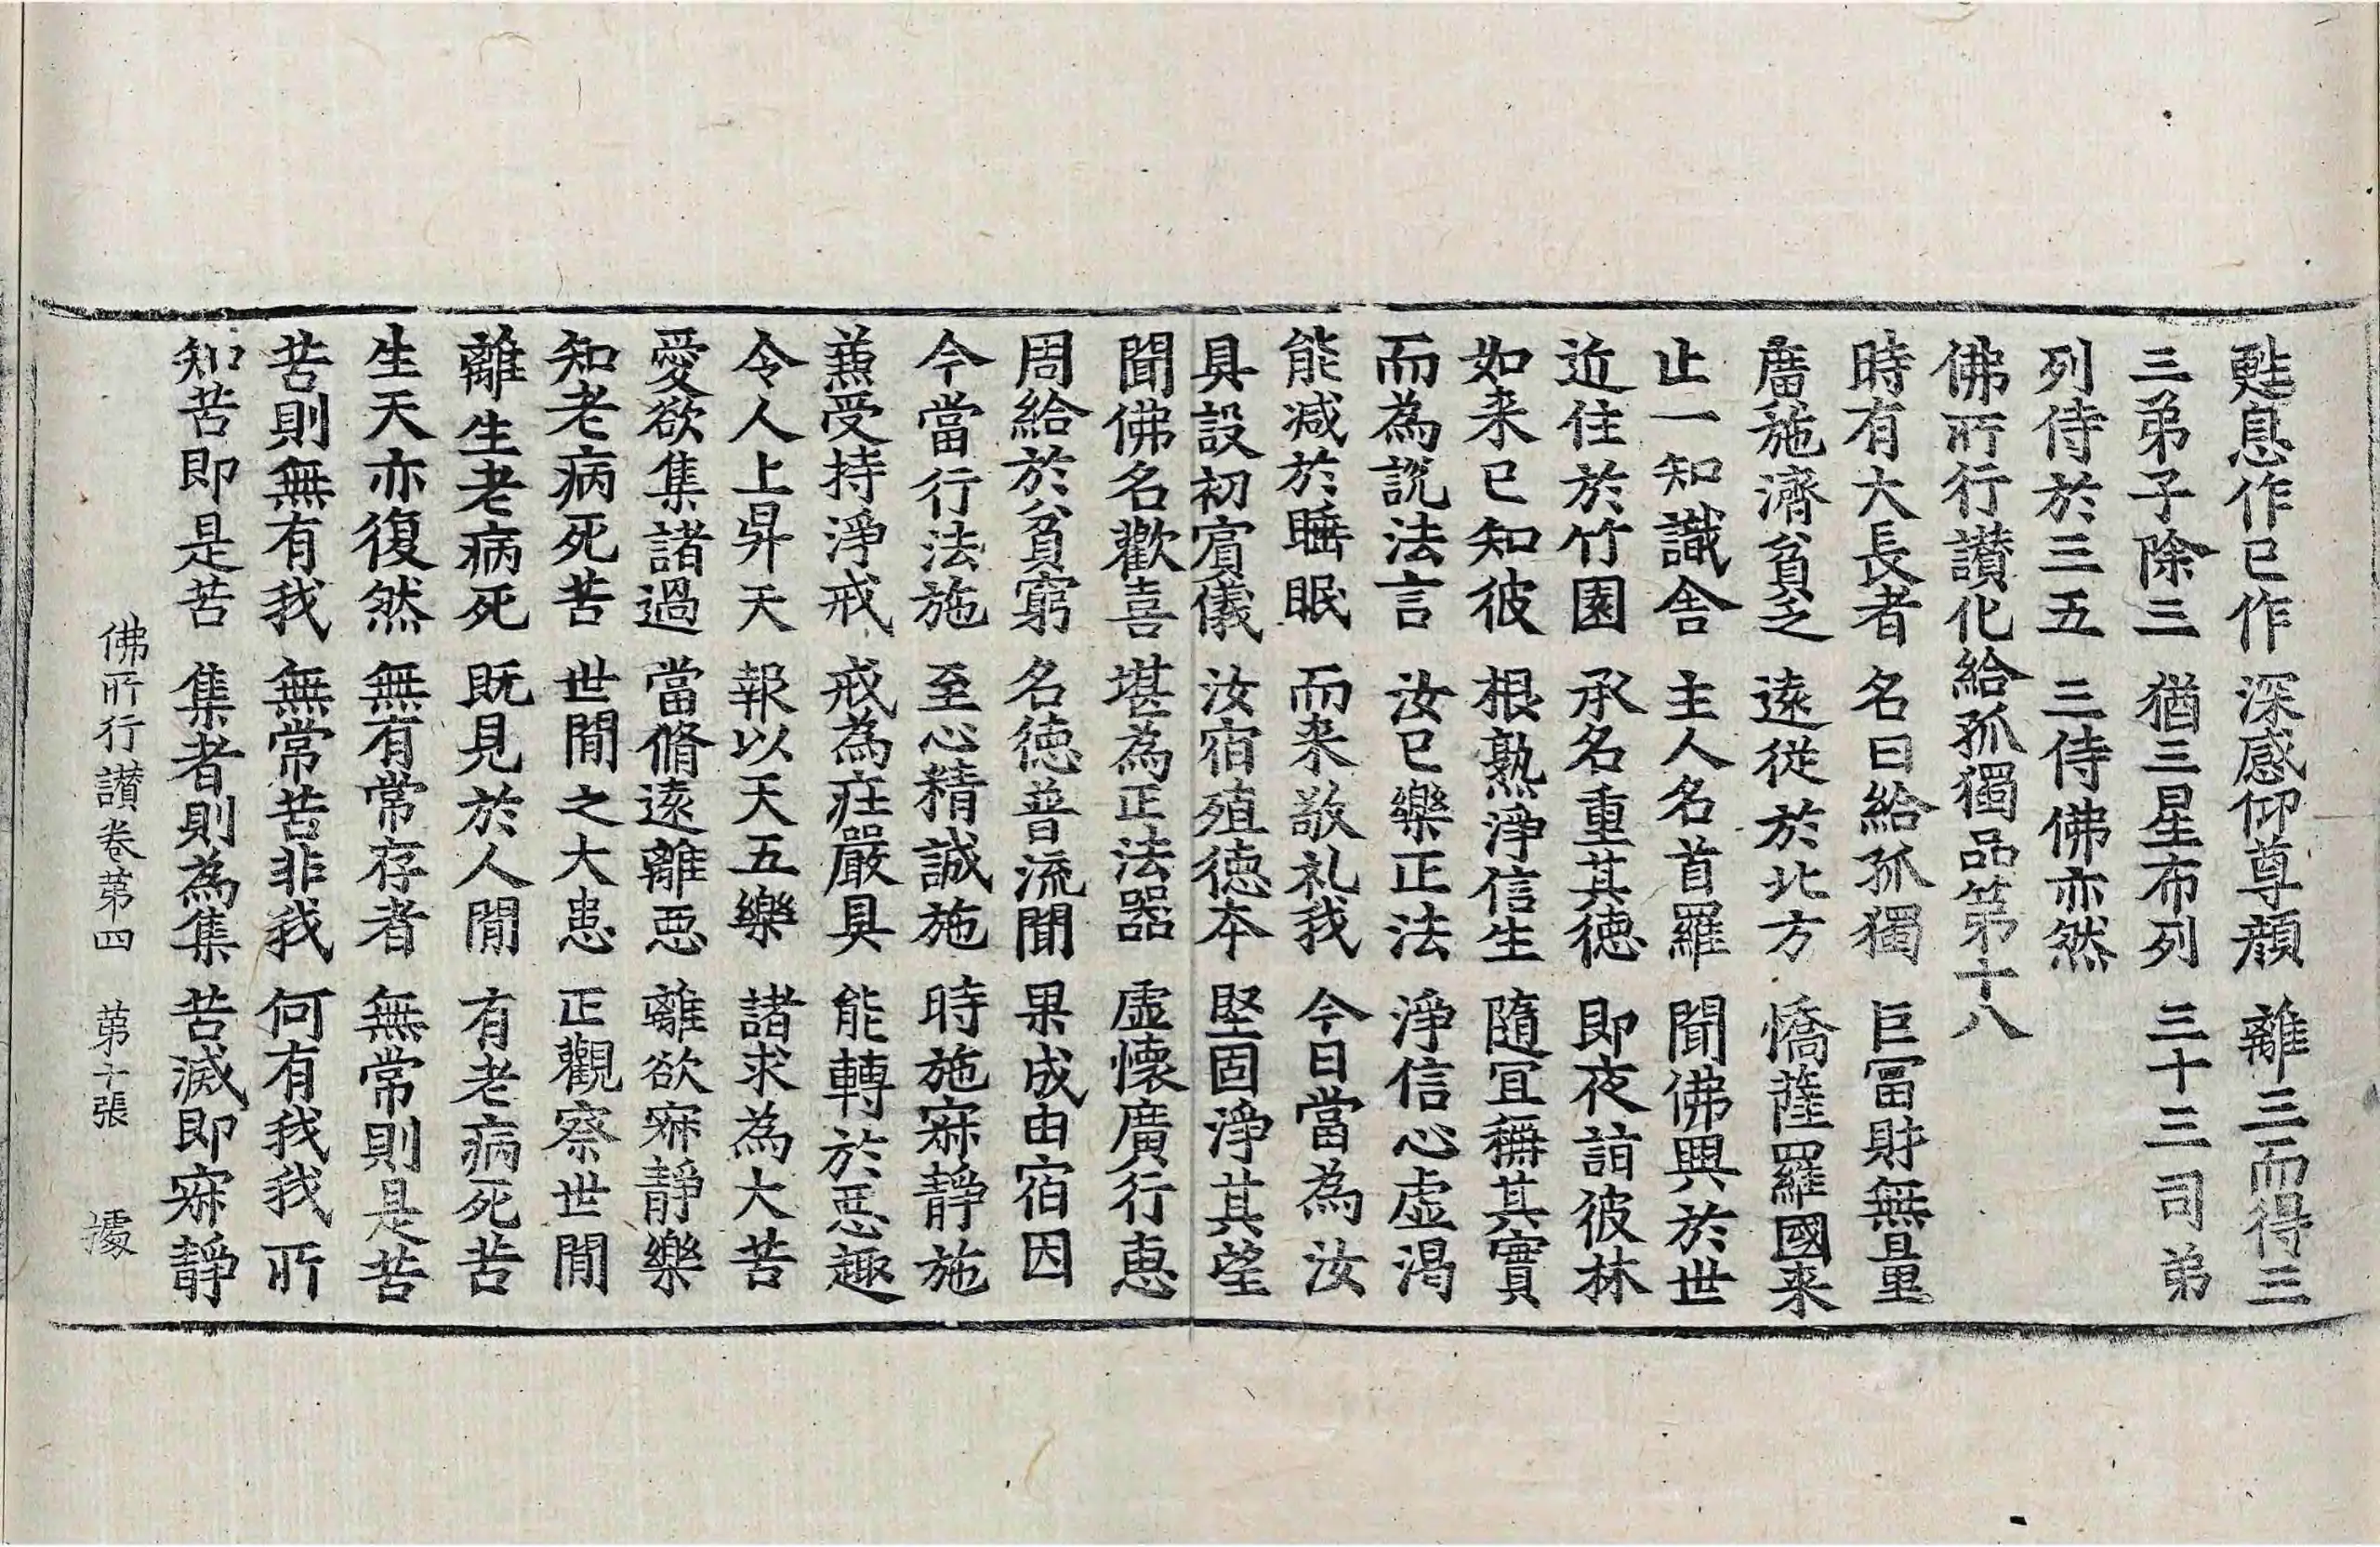 甦息作已作 深感仰尊顔 離三而得三
三弟子除三 猶三星布列 三十三司弟
列侍於三五 三侍佛亦然
佛所行讃化給孤獨品第十八
時有大長者 名曰給孤獨 巨冨財無量
廣施濟貧乏 遠從於北方 憍薩羅國来
止一知識舎 主人名首羅 聞佛興於世
近住於竹園 承名重其徳 即夜詣彼林
如来已知彼 根熟淨信生 隨冝稱其實
而為說法言 汝已樂正法 淨信心虛渴
能减於睡眠 而来敬礼我 今日當為汝
具設初賓儀 汝宿殖徳本 堅固淨其望
聞佛名歡喜 堪為正法器 虛懷廣行惠
周給於貧窮 名徳普流聞 果成由宿因
今當行法施 至心精誠施 時施寂靜施
兼受持淨戒 戒為莊嚴具 能轉於惡趣
令人上昇天 報以天五樂 諸求為大苦
愛欲集諸過 當脩遠離惡 離欲寂靜樂
知老病死苦 世閒之大患 正觀察世閒
離生老病死 既見於人閒 有老病死苦
生天亦復然 無有常存者 無常則是苦
苦則無有我 無常苦非我 何有我我所
知苦即是苦 集者則為集 苦滅即寂靜
佛所行讃卷第四 第十張 㩀